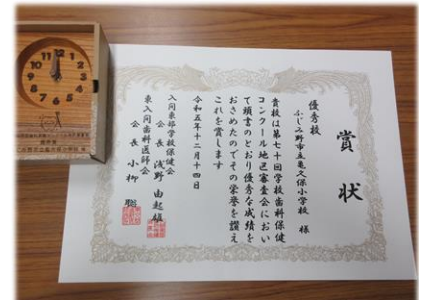 賞状
優秀校
ふじみ野市立亀久保小学校 様
貴校は第七十回学校歯科保健
コンクール地区審査会におい
て頭書のとおり優秀な成績を
おさめたのでその栄誉を讃え
これを賞します
令和五年十二月十四日
入間東部学校保健会
会長 浅野 由起
東入間歯科医師会
会長 小柳 聡
12
1
2
3
4
5
6
7
8
9
10
11